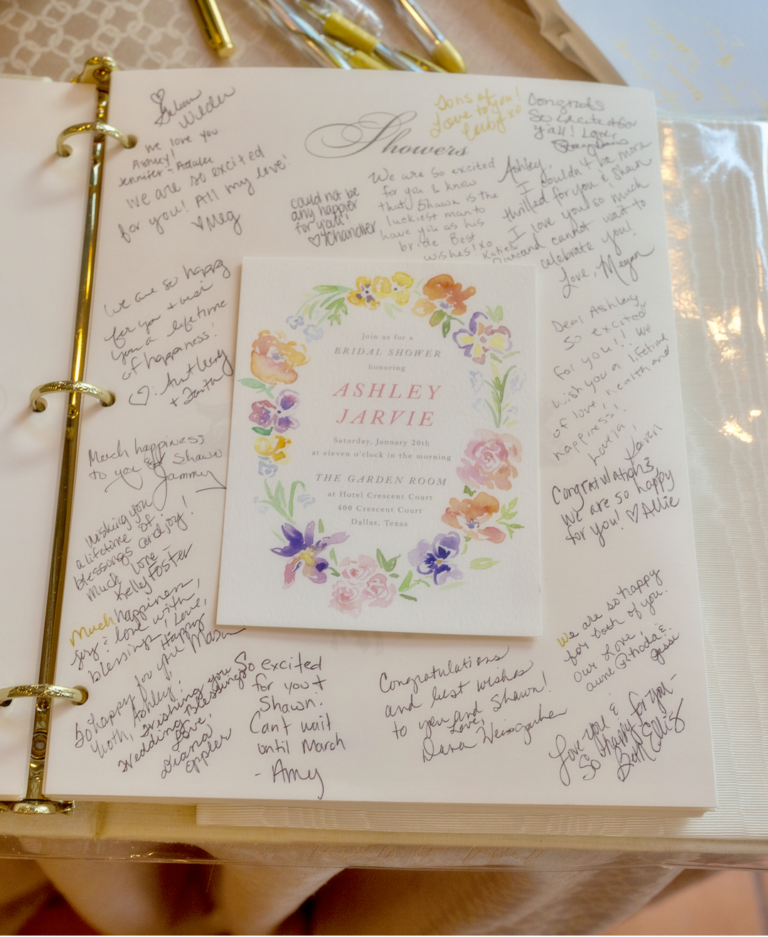 Showers
Wilder
we love you
Ashley!
Jennifer +
We are so excited
for you! All my love!
♡Meg
could not be
any happier
for you!
♡Chandler
We are so excited
for you & know
that Shawn is the
luckiest man to
have you as his
bride. Best
wishes! xo Katie &
Tons of
Love to you!
Congrats
So excited for
y'all! Love,
Ashley,
I couldn't be more
thrilled for you & Shawn
I love you so much
and cannot wait to
celebrate you!
Love, Megan
We are so happy
for you + wish
you a lifetime
of happiness!
♡ Aunt
+
Much happiness
to you & Shawn
Jammy
Wishing you
a lifetime of
blessings and joy!
Much love -
Kelly Foster
Much happiness,
joy & love with
blessings! Love,
So happy for you
both, Ashley!
Wishing you
Happy
Wedding Blessings
Love,
Diana
Eppler
Join us for a
BRIDAL SHOWER
honoring
ASHLEY
JARVIE
Saturday, January 28th
at eleven o'clock in the morning
THE GARDEN ROOM
at Hotel Crescent Court
400 Crescent Court
Dallas, Texas
Dear Ashley,
So excited
for you!! We
wish you a lifetime
of love, health and
happiness!
Love,
Karen
Congratulations
We are so happy
for you! ♡Allie
We are so happy
for both of you.
Our Love,
Aunt Rhoda &
Jesse
So excited
for you +
Shawn.
Can't wait
until March
- Amy
Congratulations
and best wishes
to you and Shawn!
Love,
Dana
Love you &
So happy for you -
Beth Ellis